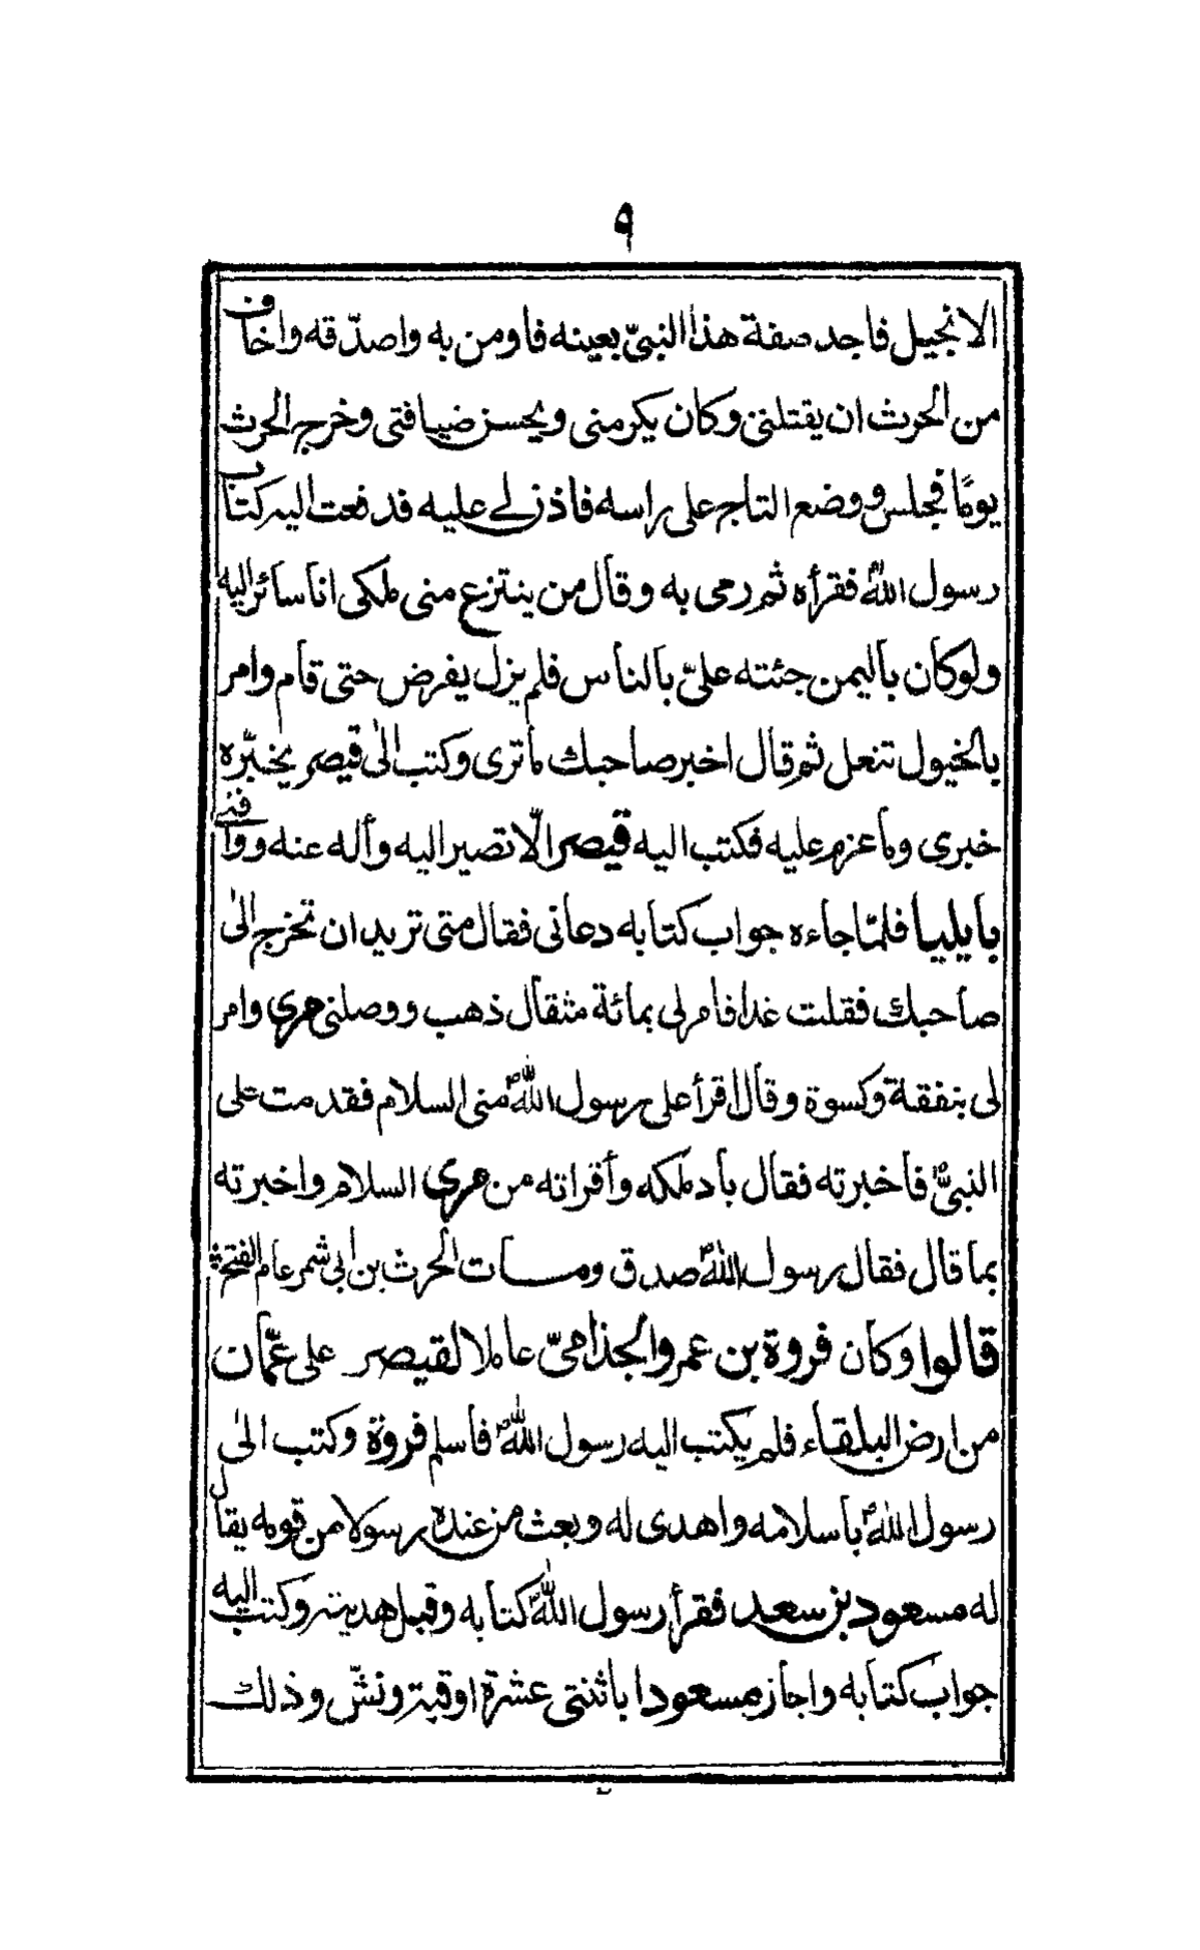 ٩
الانجيل فاجد صفة هذا النبىّ بعينه فاومن به واصدّقه واخاف
من الحرث ان يقتلنى وكان يكرمنى ويحسن ضيافتى وخرج الحرث
يومًا فجلس ووضع التاج على راسه فاذن لے عليه فدفعت اليه كتاب
رسول اللهؐ فقرأه ثم رمى به وقال من ينتزع منى ملكى انا سائر اليه
ولو كان باليمن جئته علىّ بالناس فلم يزل يفرض حتى قام وامر
بالخيول تنعل ثم قال اخبر صاحبك ما ترى وكتب الىٰ قيصر يخبّره
خبرى وما عزم عليه فكتب اليه قيصر الّا تصير اليه وأله عنه ووافنے
بايليا فلمّا جاءه جواب كتابه دعانى فقال متى تريد ان تخرج الىٰ
صاحبك فقلت غدا فامر لى بمائة مثقال ذهب ووصلنى مرى وامر
لى بنفقة وكسوة وقال اقرأ على رسول اللهؐ منى السلام فقدمت على
النبىؐ فاخبرته فقال باد ملكه وأقراته من مرى السلام واخبرته
بما قال فقال رسول اللهؐ صدق ومات الحرث بن ابى شمر عام الفتح
قالوا وكان فروة بن عمرو الجذامىّ عاملا لقيصر على عمّان
من ارض البلقاء فلم يكتب اليه رسول اللهؐ فاسلم فروة وكتب الىٰ
رسول اللهؐ باسلامه واهدى له وبعث من عنده رسولا من قومه يقال
له مسعود بن سعد فقرأ رسول اللهؐ كتابه وقبل هديته وكتب اليه
جواب كتابه واجاز مسعودا باثنتى عشرة اوقية ونشّ وذلك